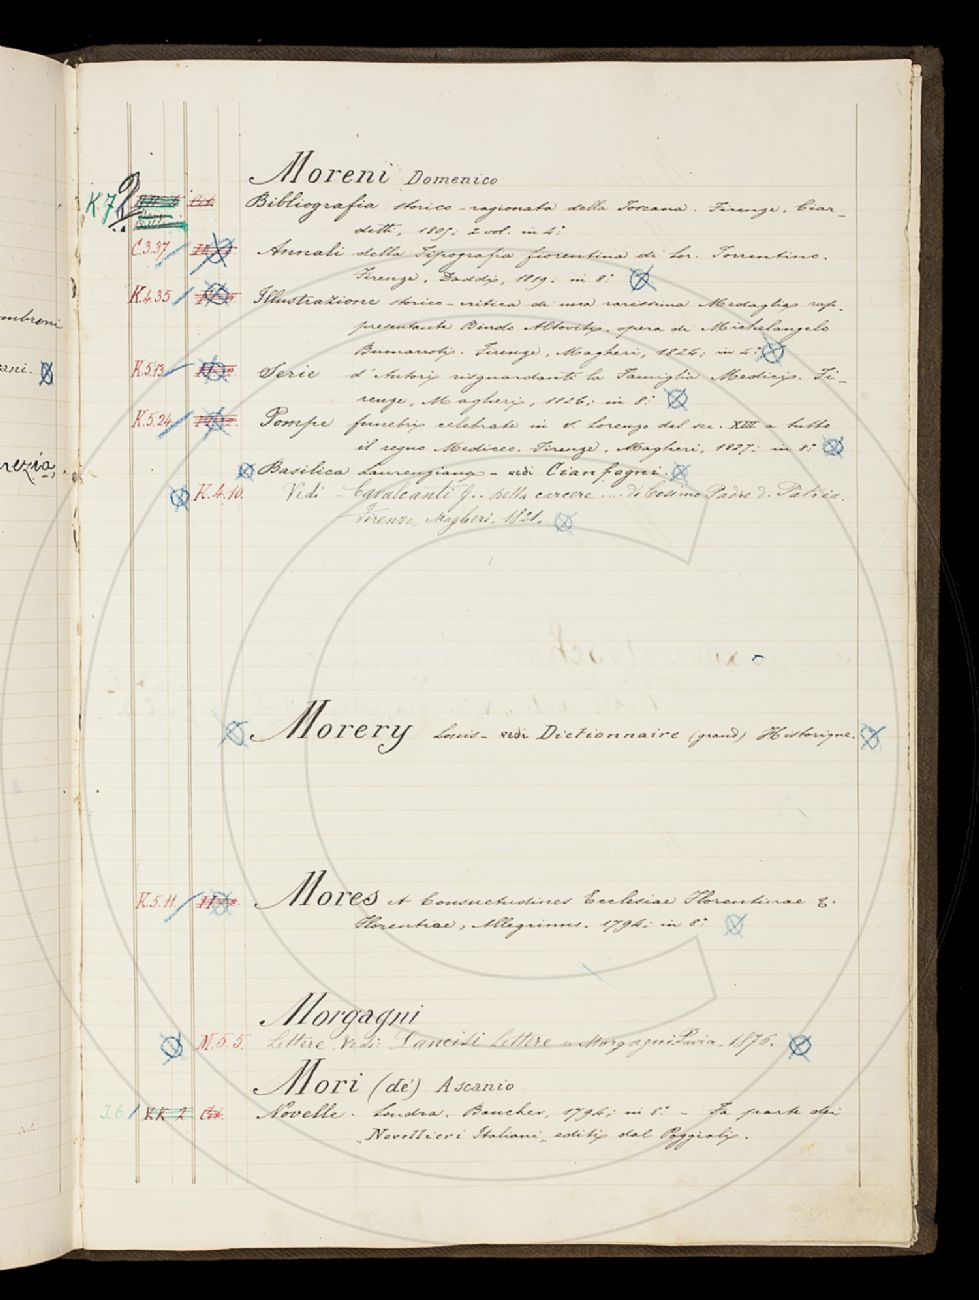 Moreni Domenico
K.7 2 Bibliografia storico-ragionata della Toscana. Firenze, Ciar-
detti, 1805; 2 vol. in 4.°
C.3.37 Annali della Tipografia fiorentina di Lor. Torrentino.
Firenze, Daddi, 1819; in 8.°
K.4.35 Illustrazione storico-critica di una rarissima Medaglia rap-
presentante Bindo Altoviti, opera di Michelangelo
Buonarroti. Firenze, Magheri, 1824; in 4.°
K.5.13 Serie d'Autori risguardanti la Famiglia Medici. Fi-
renze, Magheri, 1826; in 8.°
K.5.24 Pompe funebri celebrate in S. Lorenzo dal sec. XIII a tutto
il regno Mediceo. Firenze, Magheri, 1827; in 8.°
Basilica Laurenziana - vedi Cianfogni.
K.4.10. Vedi - Cavalcanti G.. Della carcere .... di Cosimo Padre d. Patria.
Firenze, Magheri, 1821.
Morery Louis - vedi Dictionnaire (grand) Historique.
K.5.11 Mores et Consuetudines Ecclesiae Florentinae &.
Florentiae, Allegrinus. 1794; in 8.°
Morgagni
M.5.5. Lettere Vedi: Lancisi Lettere a Morgagni Pavia. 1876.
Mori (de') Ascanio
I.6 KK 2 Novelle. Londra, Bancher, 1794; in 8.° - Fa parte dei
„Novellieri Italiani„ editi dal Poggiali.